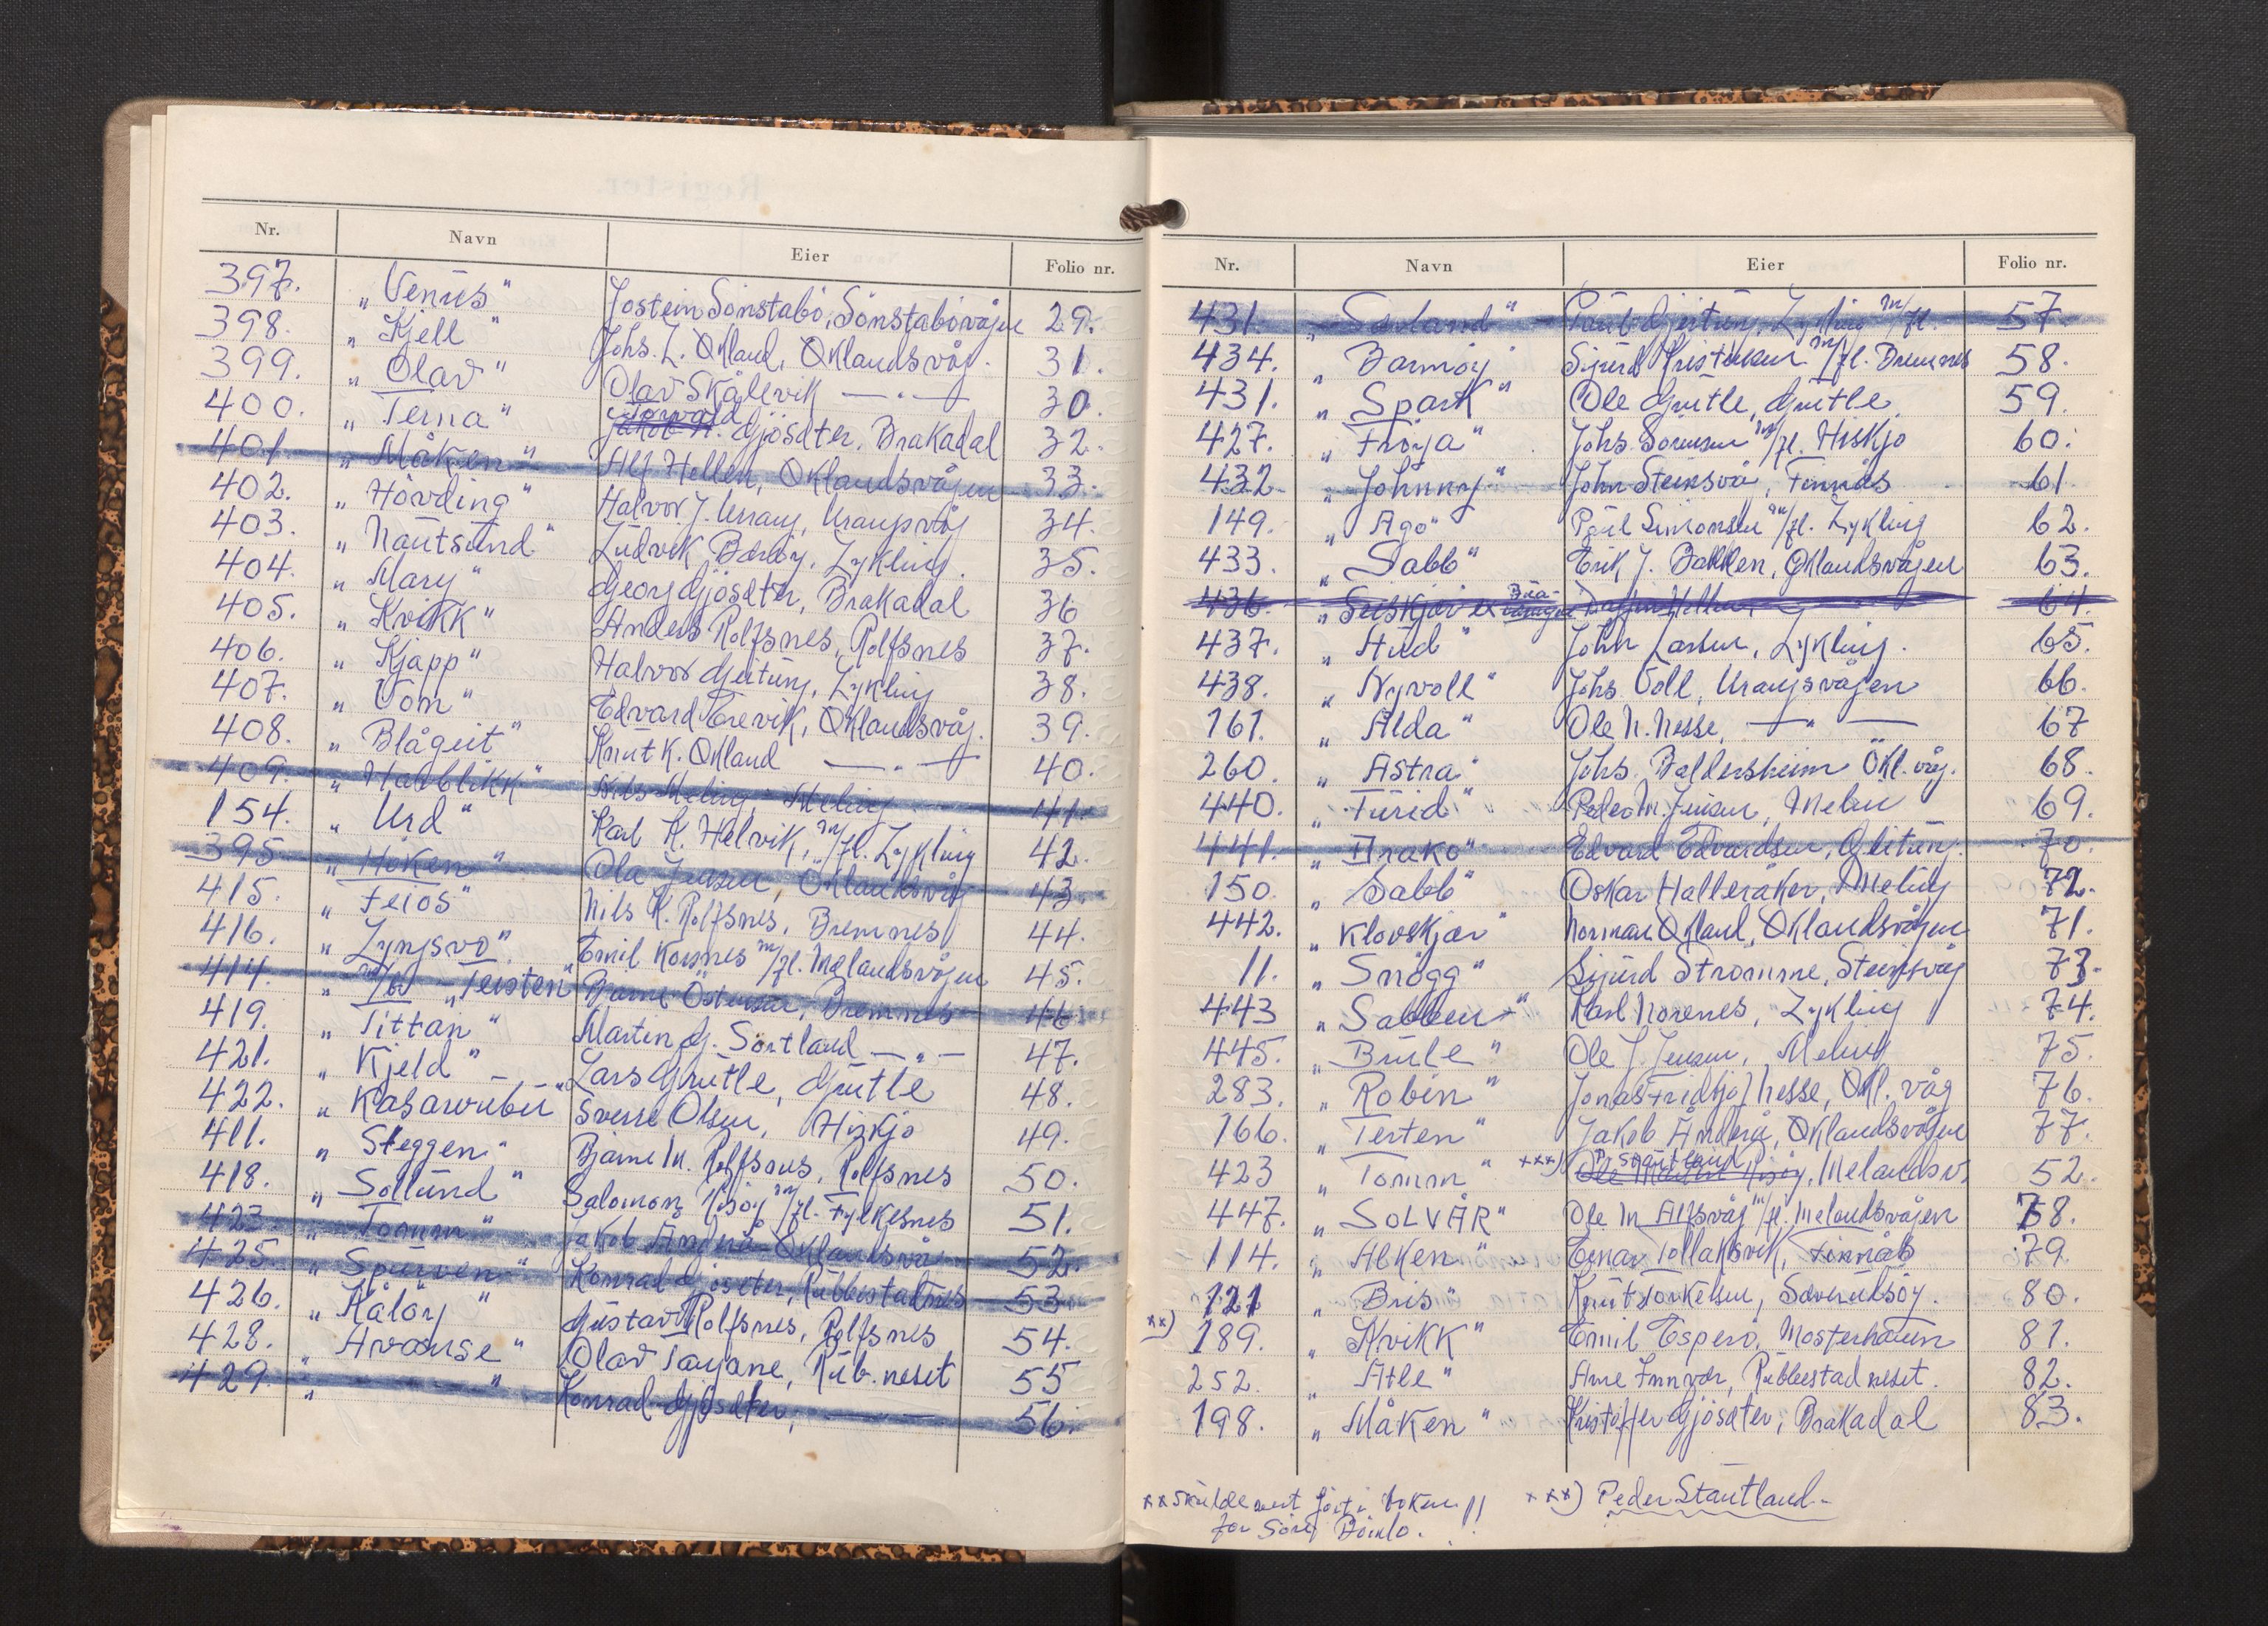 Nr. Navn Eier Folio nr.
397. „Venus" Jostein Sönstabö, Sönstabövågen 29.
398. „Kjell" Johs. L. Økland, Øklandsvåg. 31.
399. „Olav" Olav Skålevik — " — 30.
400. „Terna" Torvald Gjösæter, Brakadal 32.
401 „Måken" Alf Hellen, Øklandsvågen 33.
402. „Hövding" Halvor J. Urang, Urangsvåg 34.
403. „Nautsund" Ludvik Baröy, Lykling. 35.
404. „Mary" Georg Gjösæter, Brakadal 36
405. „Kvikk" Anders Rolfsnes, Rolfsnes 37.
406. „Kjapp" Halvor Gjeitung, Lykling 38.
407. „Vom" Edvard Trevik, Øklandsvåg. 39.
408. „Blågeit" Knut K. Økland — " — 40.
409. „Havblikk" Nils Meling, Meling 41.
154. „Urd" Karl K. Helvik, m/fl. Lykling 42.
395. „Hauken" Ola Jensen, Øklandsvåg 43.
415. „Feios" Nils K. Rolfsnes, Bremnes 44.
416. „Lyngsvo" Emil Korsnes m/fl. Mælandsvågen 45.
414. „ m/b „Teisten" Bjarne Östensen, Bremnes 46
419. „Tittan" Martin G. Sörtland — " — 47.
421. „Kjeld" Lars Grutle, Grutle 48.
422. „Kasawubu" Sverre Olsen, Hiskjo 49.
411. „Steggen" Bjarne M. Rolfsnes, Rolfsnes 50.
418. „Sollund" Salomon Risöy m/fl. Fylkesnes 51.
423. „Tomm" Jakob Andrå Øklandsvåg 52.
425. „Spurven" Konrad Gjösæter, Rubbestadnes 53
426. „Kålöy" Gustav Rolfsnes, Rolfsnes 54.
428. „Avanse" Olav Tarjane, Rub.neset 55
429. „ " Konrad Gjösæter, — 56.
Nr. Navn Eier Folio nr.
431. „Sörland" Paul Gjeitung, Lykling m/fl. 57
434. „Barmöy" Sigurd Kristensen m/fl. Bremnes 58.
431. „Spark" Ole Grutle, Grutle 59.
427. „Fröya" Johs. Sörensen m/fl. Hiskjo 60.
432. „Johnny" John Steinsvå, Finnås 61
149. „Ago" Paul Simonsen m/fl. Lykling 62.
433. „Sabb" Erik J. Bakken, Øklandsvågen 63.
436. 64.
437. „Aud" John Larsen, Lykling. 65.
438. „Nyvoll" Johs. Voll, Urangsvågen 66.
161. „Alda" Ole N. Nesse, — " — 67
260. „Astra" Johs. Baldersheim Økl.våg. 68.
440. „Turid" Peder M. Jensen, Meling 69.
441. „Drako" Edvard Edvardsen, Gjeitung. 70.
150. „Sabb" Oskar Halleråker, Meling 72.
442. „Klovskjær" Norman Økland, Øklandsvågen 71.
11. „Snögg" Sigurd Strömme, Steinsvåg 73.
443 „Sabben" Karl Norenes, Lykling 74.
445. „Brule" Ole J. Jensen, Meling 75.
283. „Robin" Jonas Fridtjof Nesse, Økl. våg 76.
166. „Terten" Jakob Andrå, Øklandsvågen 77.
423 „Tomm" xxx) P. Stautland, Melandsv. 52.
447. „SOLVÅR" Ole M. Alfsvåg m/fl. Melandsvågen 78.
114. „Alken" Einar Tollaksvik, Finnås 79.
121 „Bris" Knut Torkelsen, Sæverudsöy. 80.
xx) 189. „Kvikk" Emil Esperö, Mosterhamn 81.
252. „Atle" Arne Innvær, Rubbestadneset. 82.
198. „Måken" Kristoffer Gjösæter, Brakadal 83.
xx skulde vert fört i boken
for Söre Bömlo. !!
xxx) Peder Stautland.